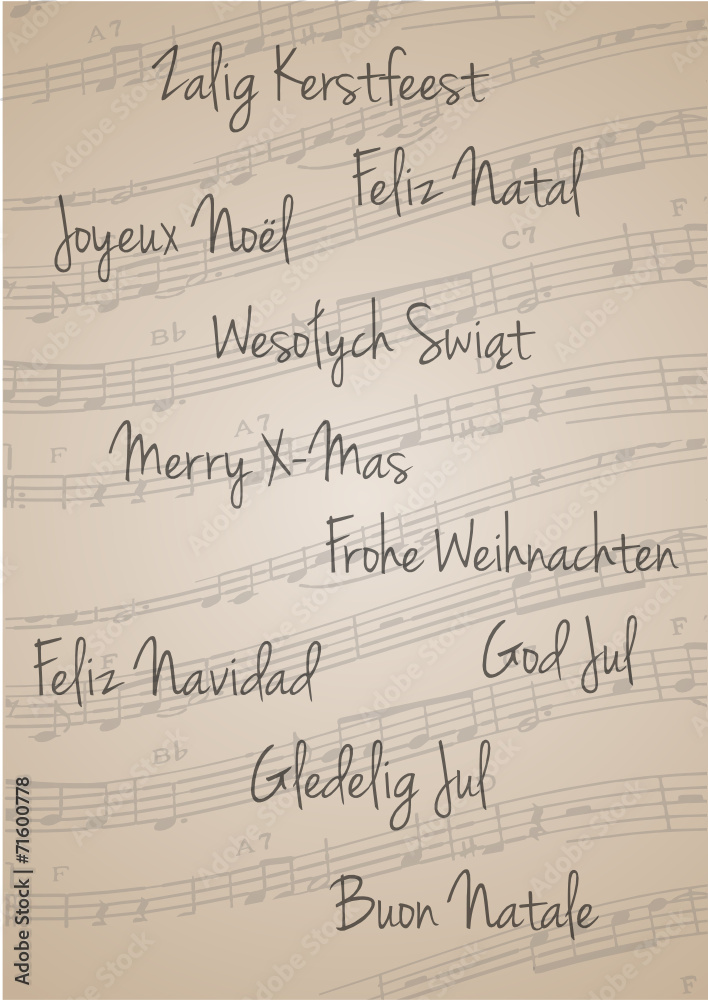 A7
Zalig Kerstfeest
Feliz Natal
Joyeux Noël
F 7
C7
Wesołych Swiąt
Bb
D
A7
F
Merry X-Mas
Frohe Weihnachten
God Jul
F 7
Feliz Navidad
F
Bb
Gledelig Jul
D
A7
F
Buon Natale
F
Adobe Stock | #71600778